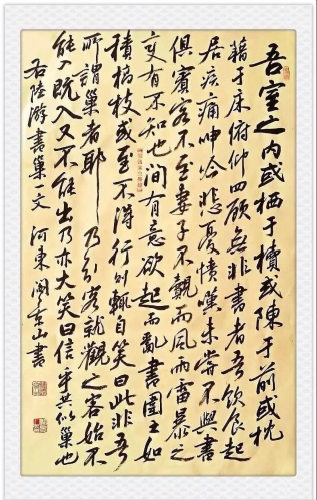 吾室之内或栖于櫝或陈于前或枕
藉于床俯仰四顧無非書者吾飲食起
居疾痛呻吟悲憂憤嘆未嘗不與書
俱賓客不至妻子不覿而風雨雷暴之
变有不知也间有意欲起而亂書圍之如
積槁枝或至不得行则輒自笑曰此非吾
所謂巢者耶乃引客就觀之客始不
能入既入又不能出乃亦大笑曰信乎其似巢也
右陸游書巢一文 河東 东山書